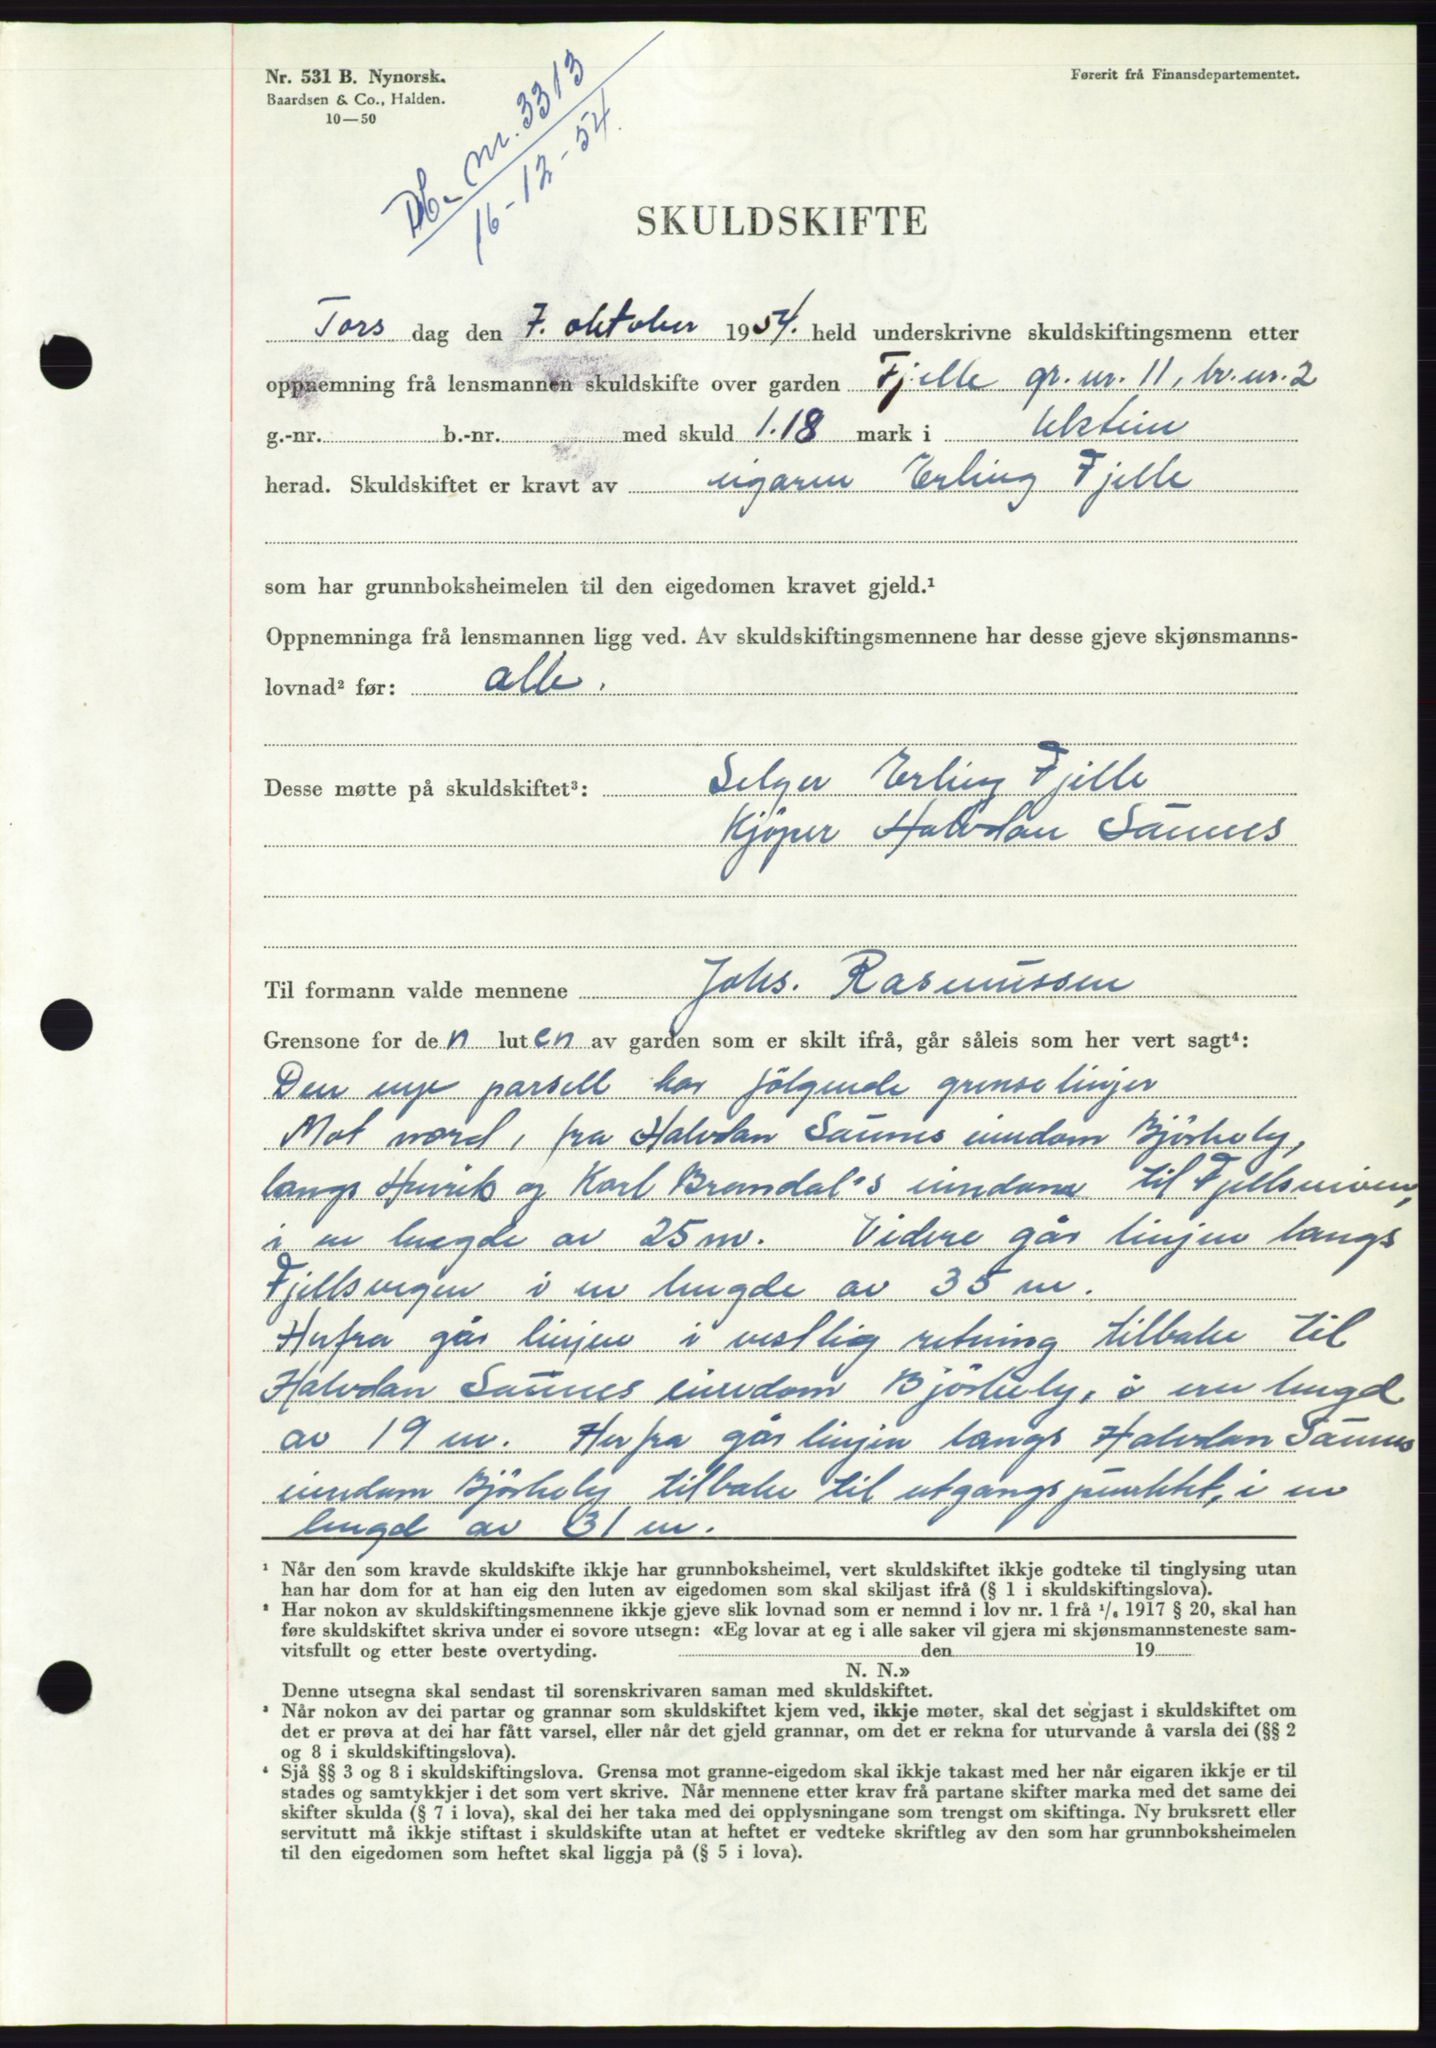 Nr. 531 B. Nynorsk.
Baardsen & Co., Halden.
10—50
Førerit frå Finansdepartementet.
Db. nr. 3313
16-12-54.
SKULDSKIFTE
Tors dag den 7. oktober 1954. held underskrivne skuldskiftingsmenn etter
oppnemning frå lensmannen skuldskifte over garden Fjelle gr. nr. 11, br. nr. 2
g.-nr. b.-nr. med skuld 1.18 mark i Ulstein
herad. Skuldskiftet er kravt av eigaren Erling Fjelle
som har grunnboksheimelen til den eigedomen kravet gjeld.¹
Oppnemninga frå lensmannen ligg ved. Av skuldskiftingsmennene har desse gjeve skjønsmanns-
lovnad² før: alle.
Desse møtte på skuldskiftet³: Selger Erling Fjelle
Kjöper Halvdan Saunes
Til formann valde mennene Johs. Rasmussen
Grensone for den luten av garden som er skilt ifrå, går såleis som her vert sagt⁴:
Den nye parsell har fölgende grenselinjer
Mot nord, fra Halvdan Saunes eiendom Björkely,
langs Henrik og Karl Brandal's eiendom til Fjellsveien,
i en lengde av 25 m. Videre går linjen langs
Fjellsvegen i en lengde av 35 m.
Herfra går linjen i vestlig retning tilbake til
Halvdan Saunes eiendom Björkely, i en lengd
av 19 m. Herfra går linjen langs Halvdan Saunes
eiendom Björkely tilbake til utgangspunktet, i en
lengd av 31 m.
¹ Når den som kravde skuldskifte ikkje har grunnboksheimel, vert skuldskiftet ikkje godteke til tinglysing utan
han har dom for at han eig den luten av eigedomen som skal skiljast ifrå (§ 1 i skuldskiftingslova).
² Har nokon av skuldskiftingsmennene ikkje gjeve slik lovnad som er nemnd i lov nr. 1 frå ¹/₆ 1917 § 20, skal han
føre skuldskiftet skriva under ei sovore utsegn: «Eg lovar at eg i alle saker vil gjera mi skjønsmannsteneste sam-
vitsfullt og etter beste overtyding. den 19
N. N.»
Denne utsegna skal sendast til sorenskrivaren saman med skuldskiftet.
³ Når nokon av dei partar og grannar som skuldskiftet kjem ved, ikkje møter, skal det segjast i skuldskiftet om
det er prøva at dei har fått varsel, eller når det gjeld grannar, om det er rekna for uturvande å varsla dei (§§ 2
og 8 i skuldskiftingslova).
⁴ Sjå §§ 3 og 8 i skuldskiftingslova. Grensa mot granne-eigedom skal ikkje takast med her når eigaren ikkje er til
stades og samtykkjer i det som vert skrive. Når mennene etter krav frå partane skifter marka med det same dei
skifter skulda (§ 7 i lova), skal dei her taka med dei opplysningane som trengst om skiftinga. Ny bruksrett eller
servitutt må ikkje stiftast i skuldskifte utan at heftet er vedteke skriftleg av den som har grunnboksheimelen
til den eigedomen som heftet skal liggja på (§ 5 i lova).